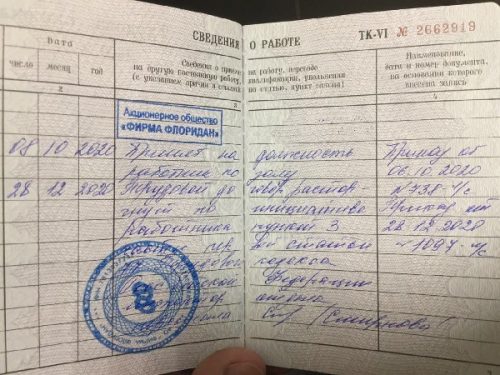 СВЕДЕНИЯ О РАБОТЕ ТК-VI № 2662919
Дата
число месяц год
Сведения о приеме на работу, переводе
на другую постоянную работу, квалификации, увольнении
(с указанием причин и ссылкой на статью, пункт закона)
Наименование,
дата и номер документа,
на основании которого
внесена запись
2 3 4
Акционерное общество
«ФИРМА ФЛОРИДАН»
08 10 2020 Принят на должность Приказ от
работник по залу 06.10.2020
28 12 2020 Трудовой договор расторг- N 738 л/с
нут по инициативе Приказ от
работника пункт 3 28.12.2020
статьи 1097 л/с
кодекса
Федерации
отдела
Смирнова